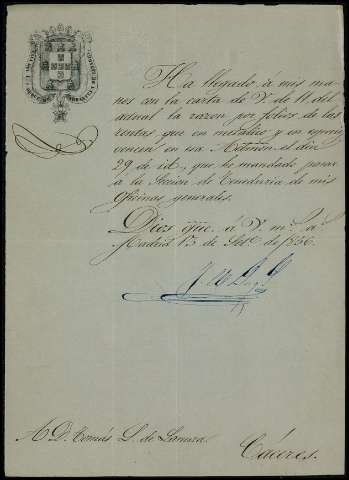 Ha llegado á mis ma-
nos con la carta de V. de 11 del
actual la razon por folios de las
rentas que en metálico y en especie
vencen en esa Admon. el dia
29 de id., que he mandado pasar
á la Seccion de Teneduria de mis
Oficinas generales.
Dios gue. á V. ms. as.
Madrid 13 de Set. de 1856.
A D. Tomás L. de
Cáceres.